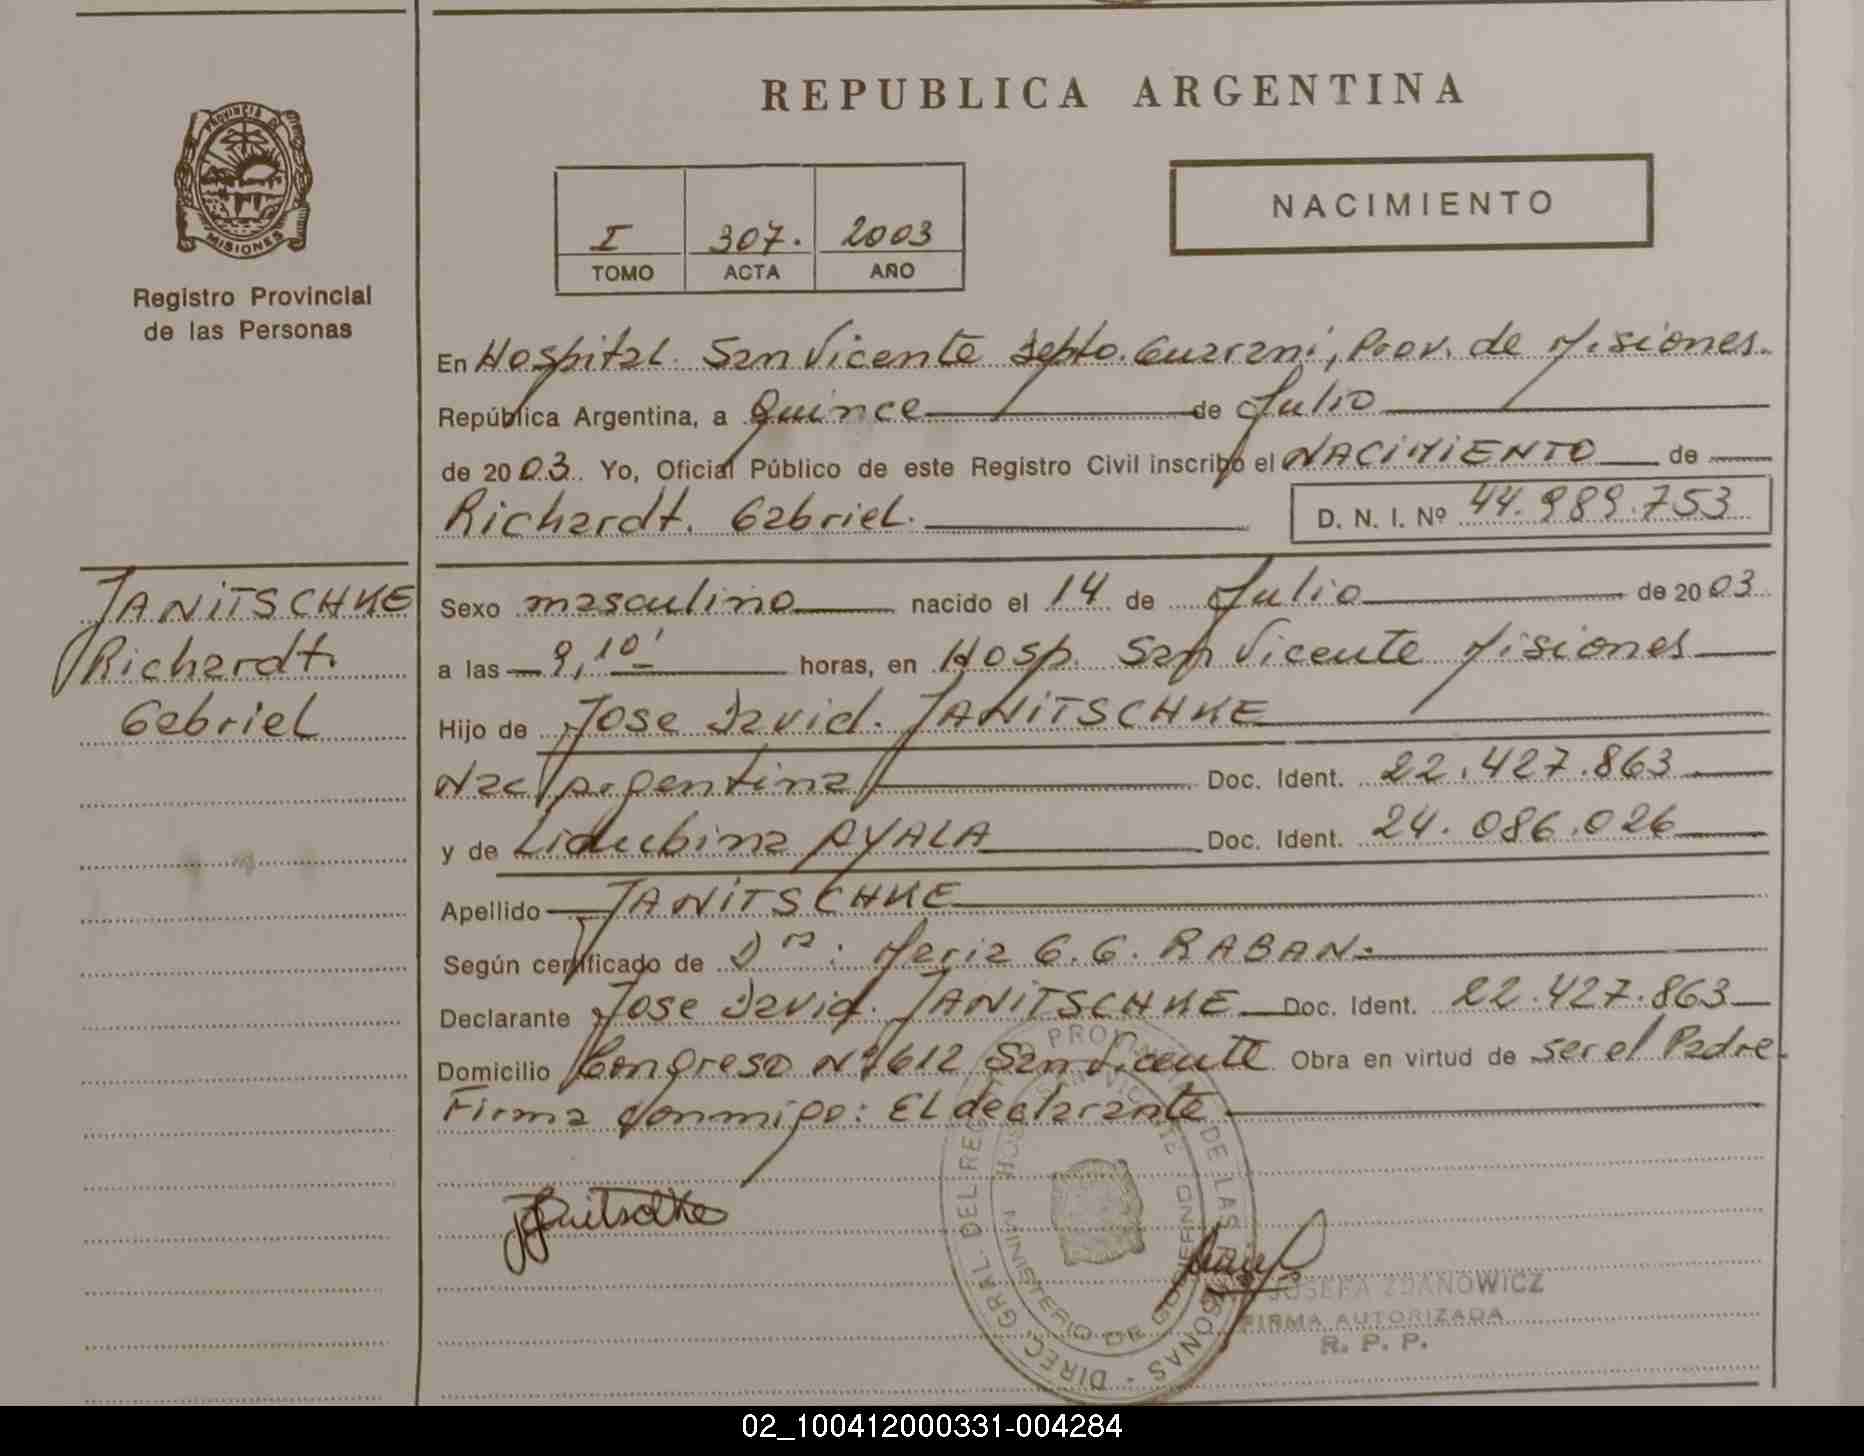 REPUBLICA ARGENTINA
PROVINCIA DE
MISIONES
Registro Provincial
de las Personas
NACIMIENTO
I 307. 2003
TOMO ACTA AÑO
En Hospital San Vicente Depto. Guarani, Prov. de Misiones.
República Argentina, a Quince de Julio
de 2003. Yo, Oficial Público de este Registro Civil inscribo el NACIMIENTO de
Richardt. Gabriel.
D. N. I. Nº 44.989.753
JANITSCHKE
Richardt.
Gabriel
Sexo masculino nacido el 14 de Julio de 2003
a las 9,10' horas, en Hosp. San Vicente Misiones
Hijo de Jose David. JANITSCHKE
Nac Argentina Doc. Ident. 22.427.863
y de Lidubina AYALA Doc. Ident. 24.086.026
Apellido JANITSCHKE
Según certificado de Dra: Maria G. G. RABAN.
Declarante Jose David. JANITSCHKE Doc. Ident. 22.427.863
Domicilio Congreso Nº 612 San Vicente Obra en virtud de ser el Padre.
Firma conmigo: El declarante
JOSEFA ZDANOWICZ
FIRMA AUTORIZADA
R. P. P.
DIREC. GRAL. DEL REG. PROVINCIAL DE LAS PERSONAS
HOSP. SAN VICENTE
MINISTERIO DE GOBIERNO
02_100412000331-004284